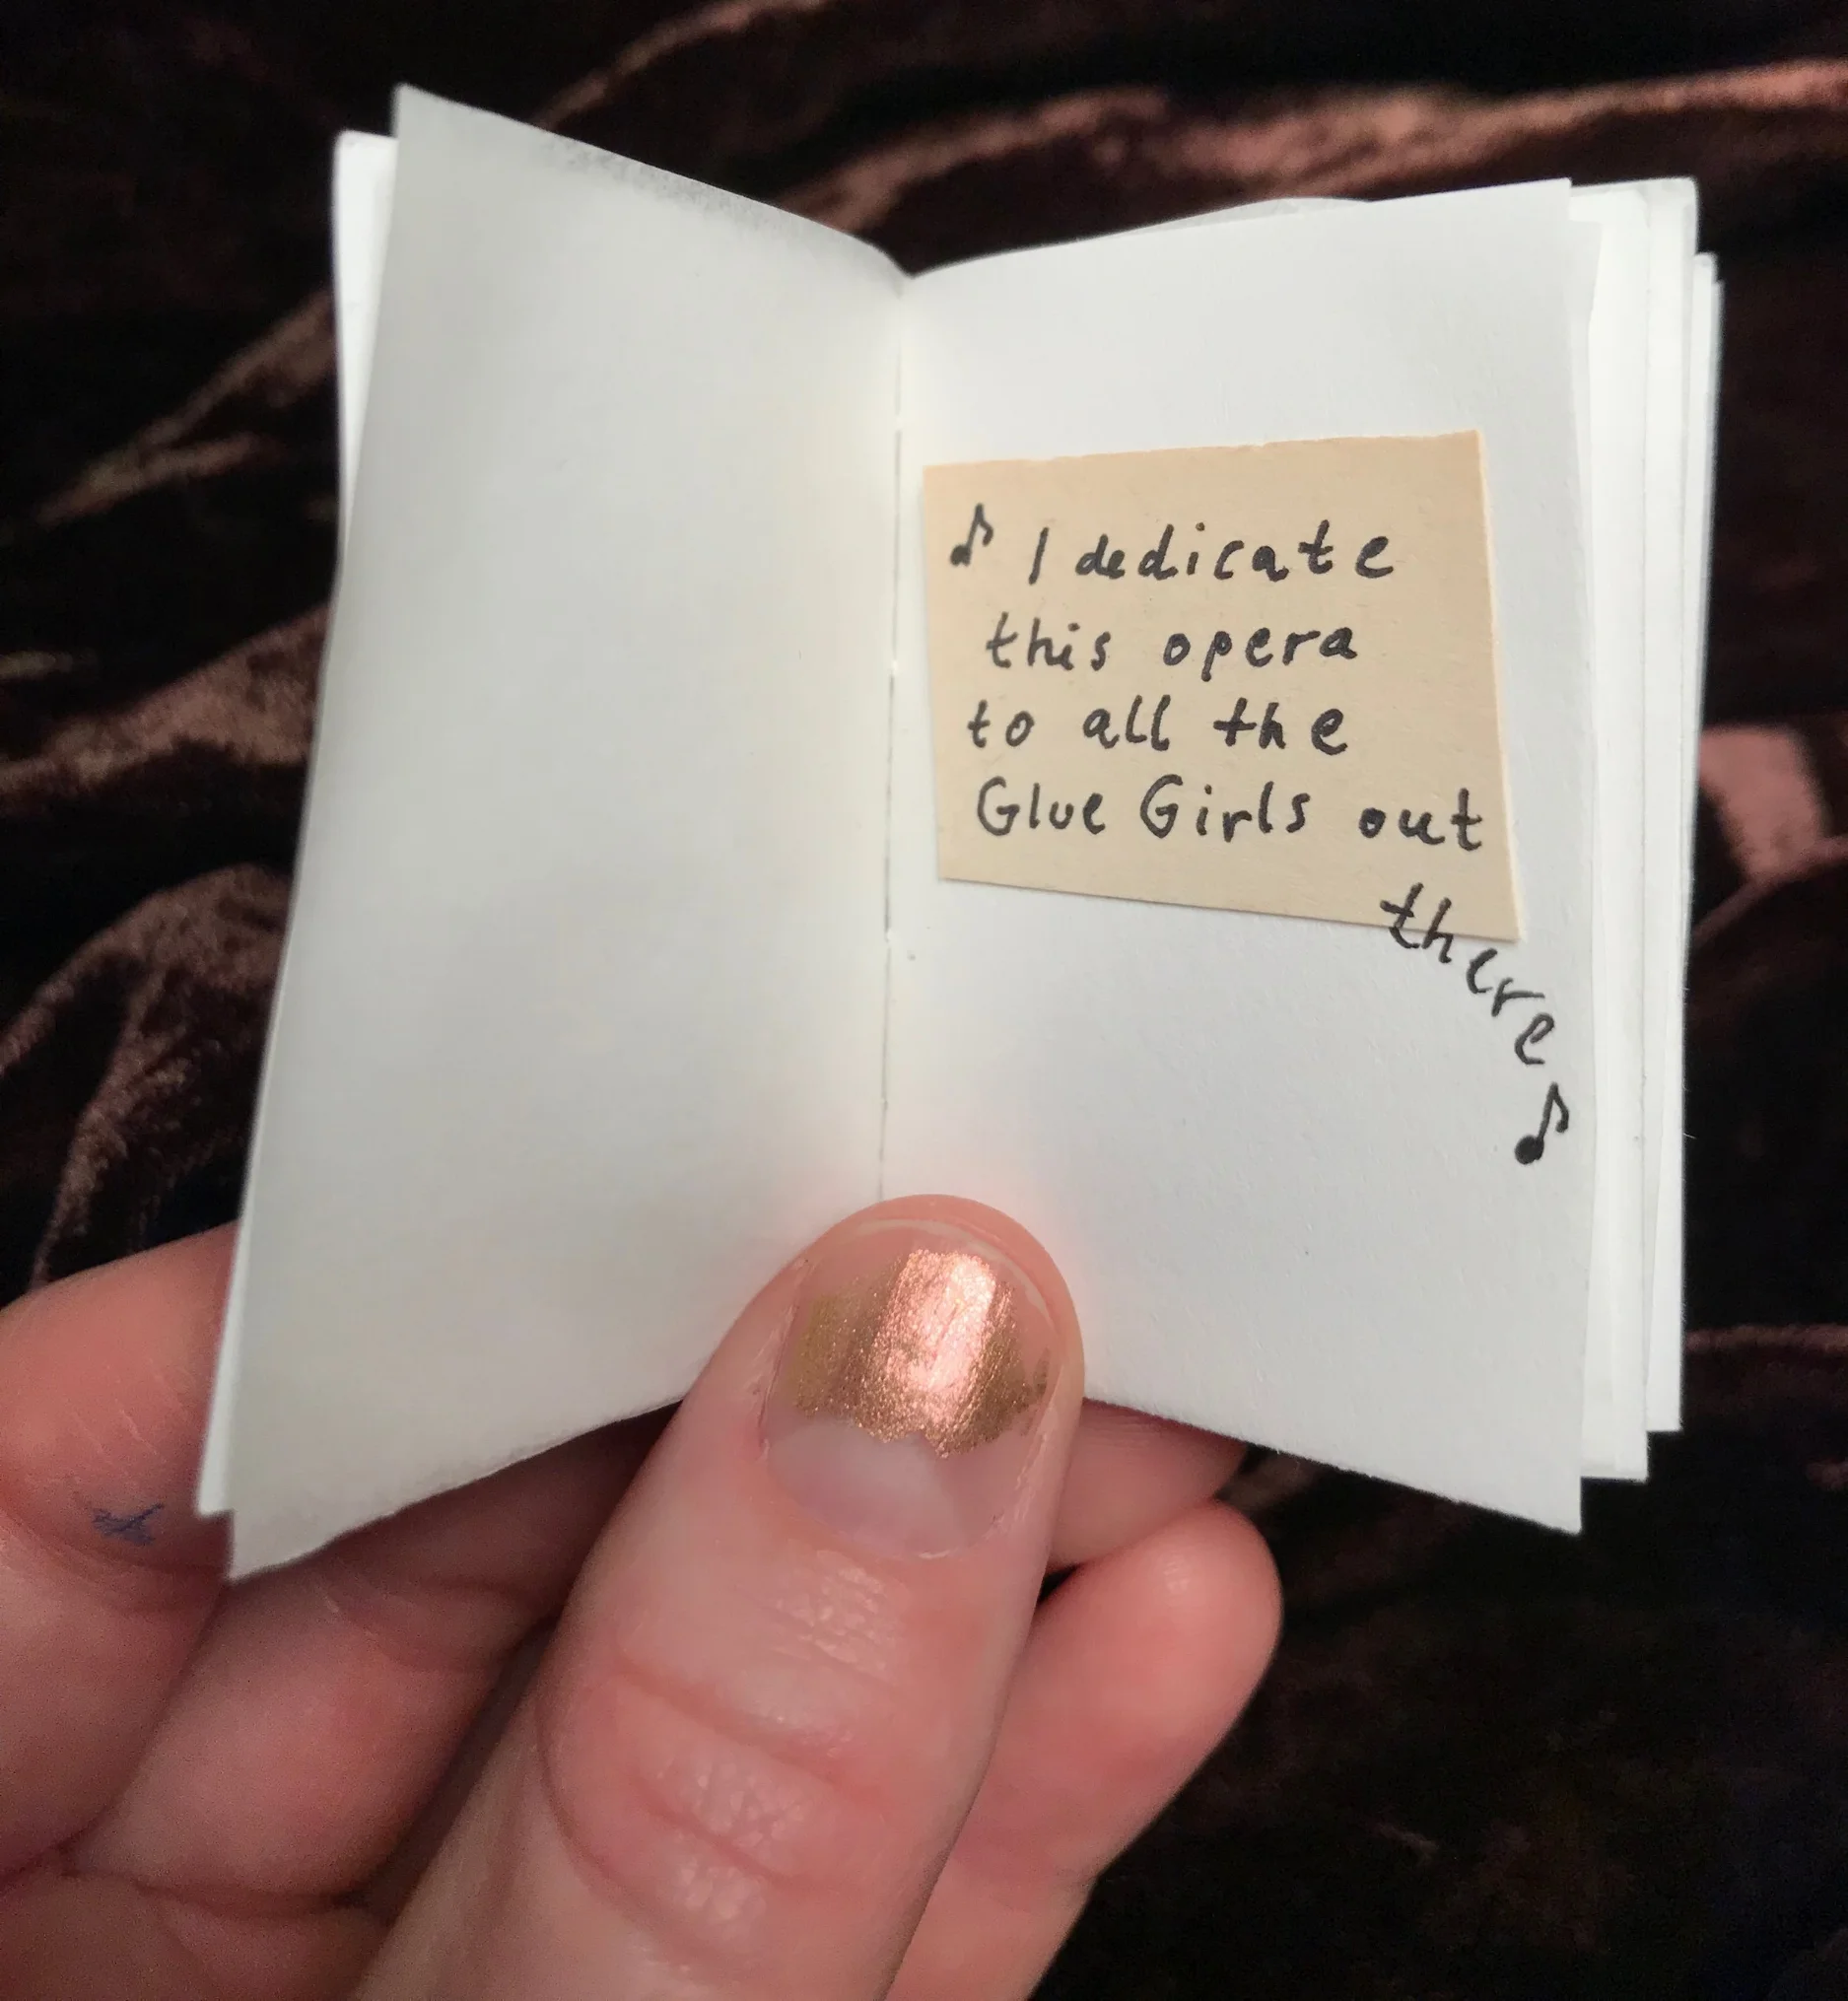 ♪ I dedicate
this opera
to all the
Glue Girls out
there
♪